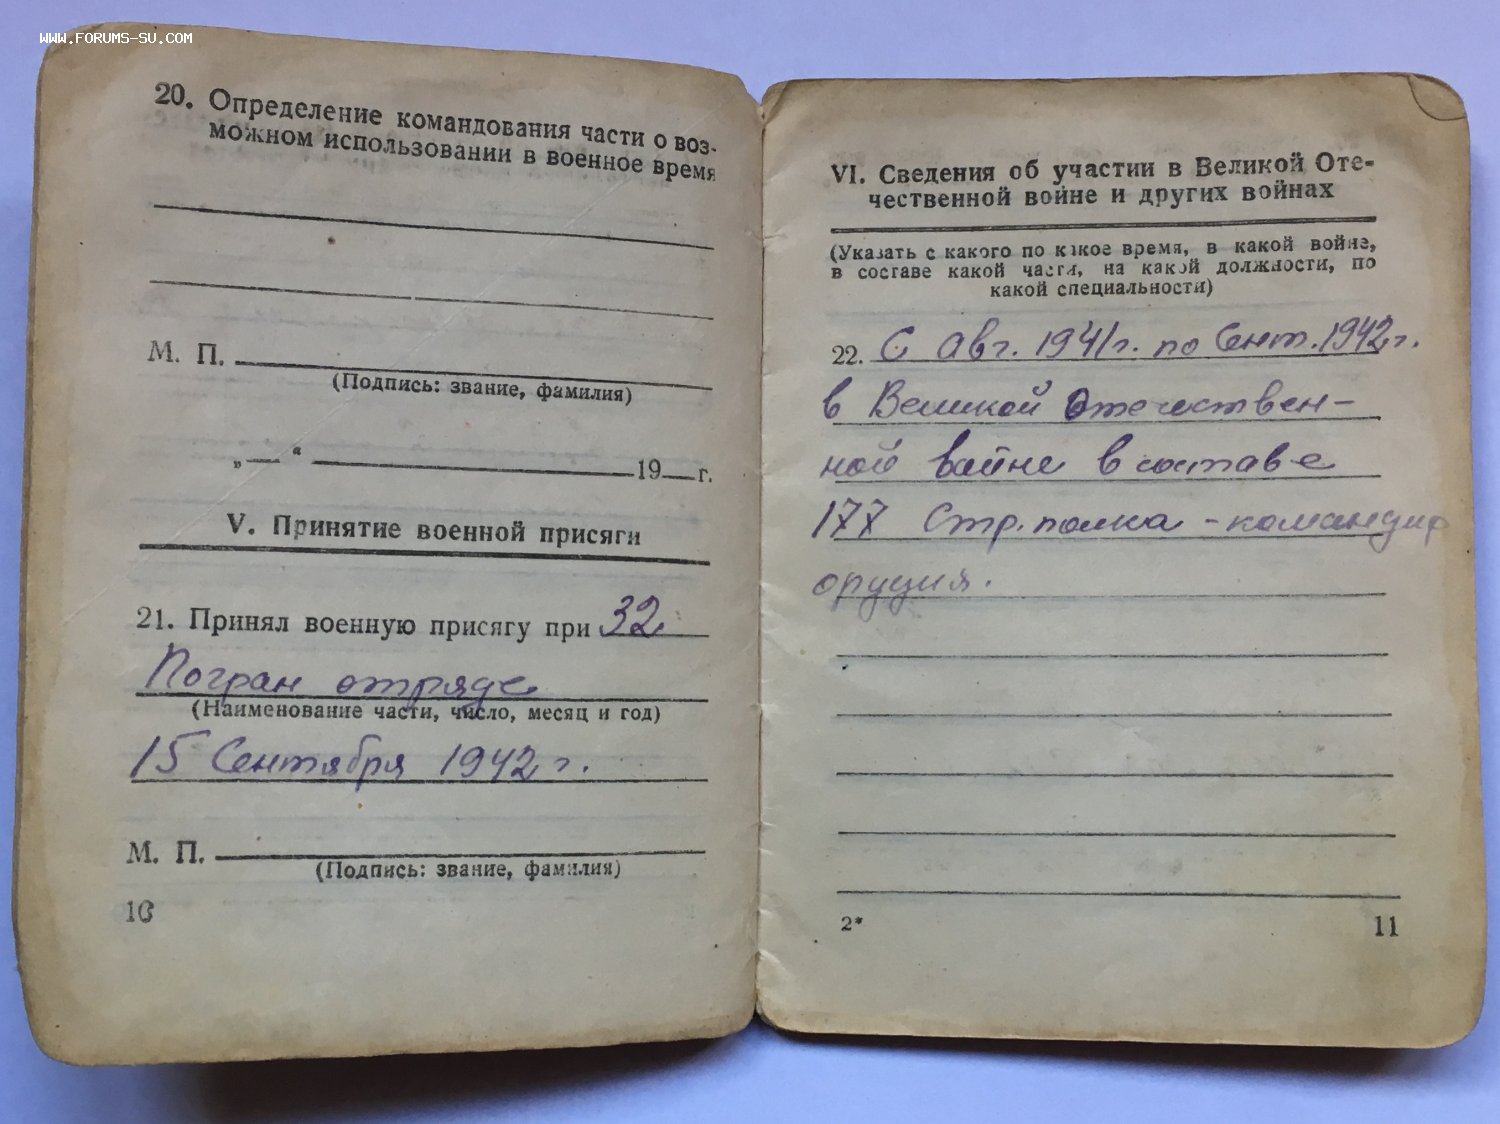 www.forums-su.com
20. Определение командования части о воз-
можном использовании в военное время
М. П.
(Подпись: звание, фамилия)
„— “ 19 г.
V. Принятие военной присяги
21. Принял военную присягу при 32
Погран отряде
(Наименование части, число, месяц и год)
15 Сентября 1942 г.
М. П.
(Подпись: звание, фамилия)
10
VI. Сведения об участии в Великой Оте-
чественной войне и других войнах
(Указать с какого по какое время, в какой войне,
в составе какой части, на какой должности, по
какой специальности)
22. С Авг. 1941 г. по Сент. 1942 г.
в Великой Отечествен-
ной войне в составе
177 Стр. полка - командир
орудия.
2*
11